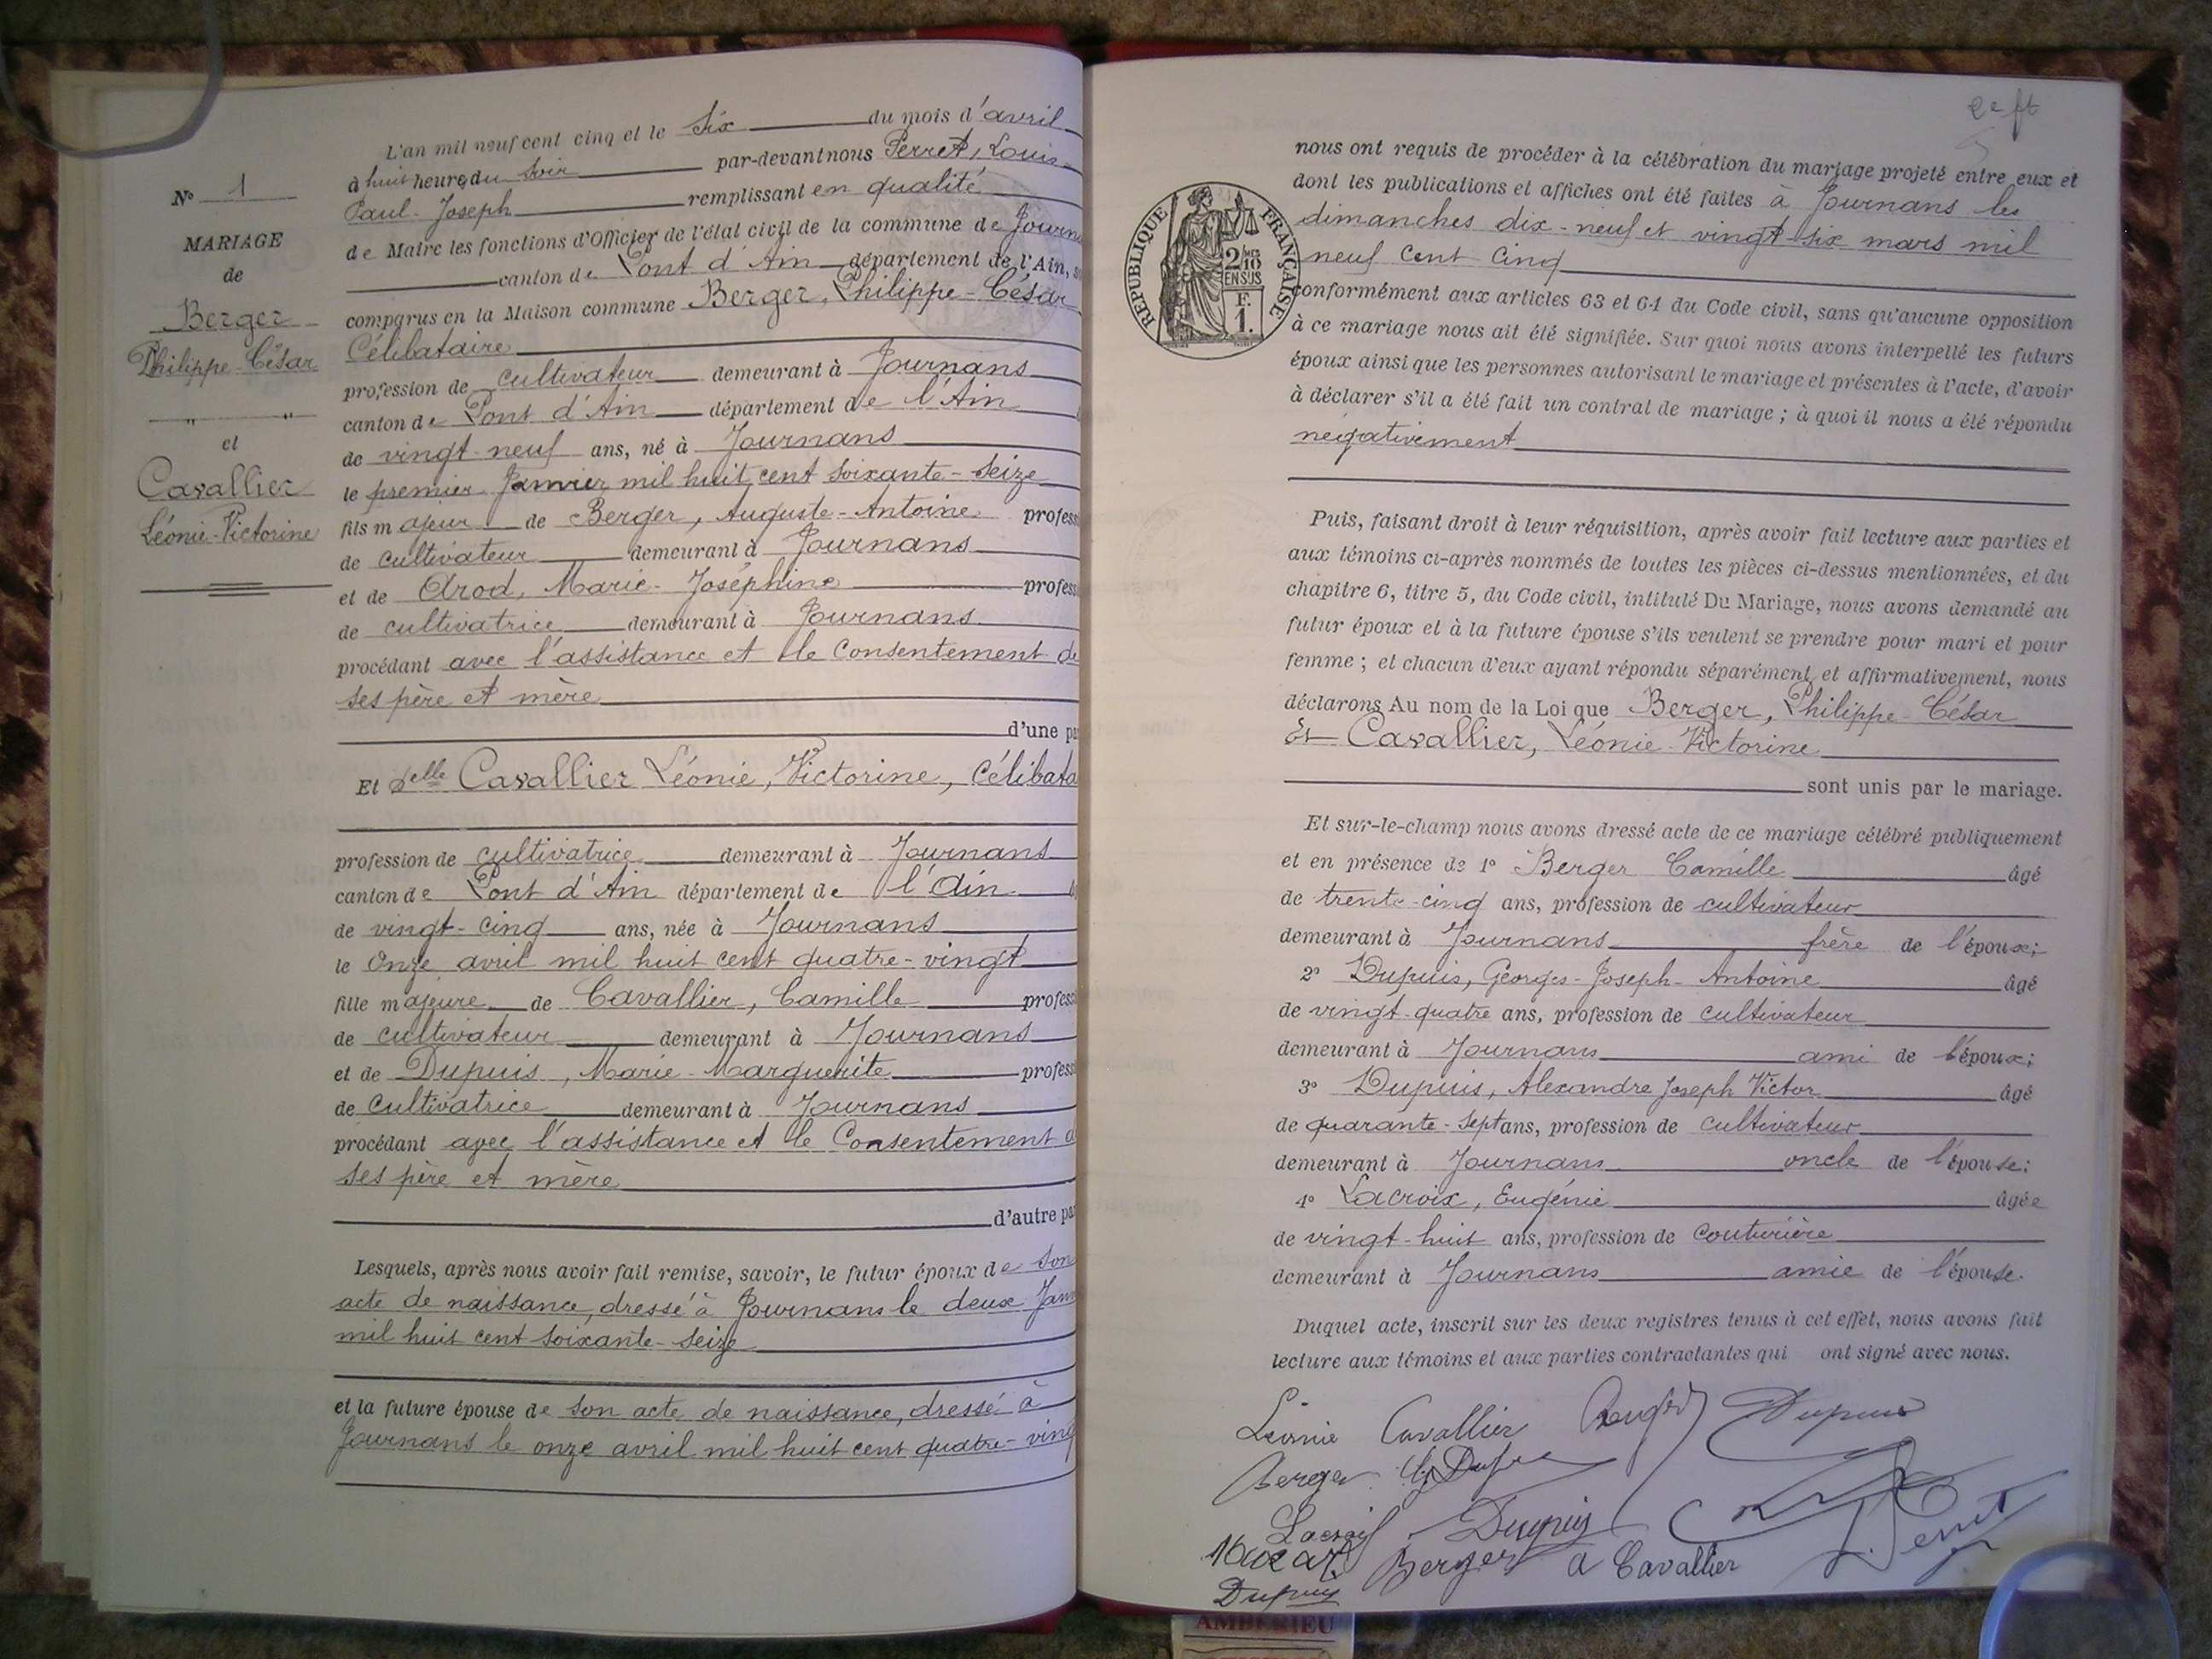 L'an mil neuf cent cinq et le six du mois d'avril
à huit heures du soir par-devant nous Perret, Louis-
Paul-Joseph remplissant en qualité
de Maire les fonctions d'Officier de l'état civil de la commune de Journ
canton de Pont d'Ain département de l'Ain,
comparus en la Maison commune Berger, Philippe-César
Célibataire
profession de cultivateur demeurant à Journans
canton de Pont d'Ain département de l'Ain
de vingt-neuf ans, né à Journans
le premier Janvier mil huit cent soixante-seize
fils majeur de Berger, Auguste-Antoine profess
de cultivateur demeurant à Journans
et de Arod, Marie-Joséphine profess
de cultivatrice demeurant à Journans
procédant avec l'assistance et le Consentement de
ses père et mère
d'une pa
Et Delle Cavallier Léonie, Victorine, Célibata
profession de cultivatrice demeurant à Journans
canton de Pont d'Ain département de l'Ain
de vingt-cinq ans, née à Journans
le onze avril mil huit cent quatre-vingt
fille majeure de Cavallier, Camille profess
de cultivateur demeurant à Journans
et de Dupuis, Marie-Marguerite profess
de cultivatrice demeurant à Journans
procédant avec l'assistance et le Consentement d
ses père et mère
d'autre pa
Lesquels, après nous avoir fait remise, savoir, le futur époux de son
acte de naissance, dressé à Journans le deux Janv
mil huit cent soixante-seize
et la future épouse de son acte de naissance, dressé à
Journans le onze avril mil huit cent quatre-ving
N° 1
MARIAGE
de
Berger
Philippe-César
et
Cavallier
Léonie-Victorine
2e ft
RÉPUBLIQUE FRANÇAISE
2/10
EN SUS
F.
1.
nous ont requis de procéder à la célébration du mariage projeté entre eux et
dont les publications et affiches ont été faites à Journans les
dimanches dix-neuf et vingt-six mars mil
neuf cent cinq
conformément aux articles 63 et 64 du Code civil, sans qu'aucune opposition
à ce mariage nous ait été signifiée. Sur quoi nous avons interpellé les futurs
époux ainsi que les personnes autorisant le mariage et présentes à l'acte, d'avoir
à déclarer s'il a été fait un contrat de mariage ; à quoi il nous a été répondu
négativement
Puis, faisant droit à leur réquisition, après avoir fait lecture aux parties et
aux témoins ci-après nommés de toutes les pièces ci-dessus mentionnées, et du
chapitre 6, titre 5, du Code civil, intitulé Du Mariage, nous avons demandé au
futur époux et à la future épouse s'ils veulent se prendre pour mari et pour
femme ; et chacun d'eux ayant répondu séparément et affirmativement, nous
déclarons Au nom de la Loi que Berger, Philippe-César
Et Cavallier, Léonie-Victorine
sont unis par le mariage.
Et sur-le-champ nous avons dressé acte de ce mariage célébré publiquement
et en présence de 1° Berger Camille âgé
de trente-cinq ans, profession de cultivateur
demeurant à Journans frère de l'époux;
2° Dupuis, Georges-Joseph-Antoine âgé
de vingt-quatre ans, profession de cultivateur
demeurant à Journans ami de l'époux;
3° Dupuis, Alexandre Joseph Victor âgé
de quarante-sept ans, profession de cultivateur
demeurant à Journans oncle de l'épouse;
4° Lacroix, Eugénie âgée
de vingt-huit ans, profession de couturière
demeurant à Journans amie de l'épouse.
Duquel acte, inscrit sur les deux registres tenus à cet effet, nous avons fait
lecture aux témoins et aux parties contractantes qui ont signé avec nous.
Léonie Cavallier Dupuis
Berger
Dupuis
Berger a Cavallier Perret
Dupuis
AMBERIEU